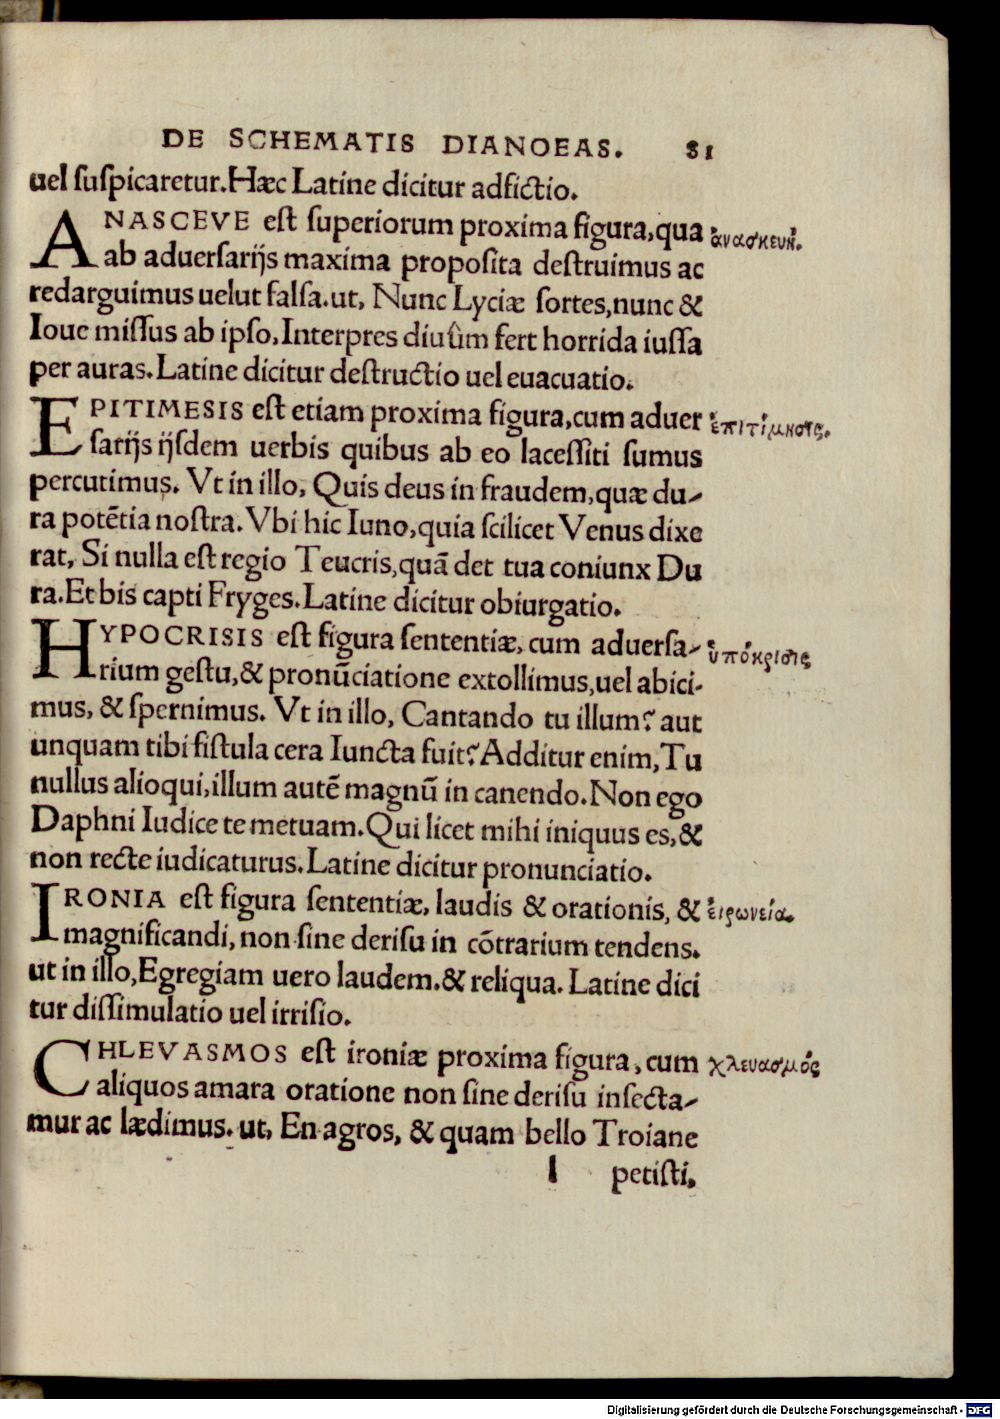 DE SCHEMATIS DIANOEAS. 81
uel suspicaretur. Hæc Latine dicitur adfictio.
ANASCEVE est superiorum proxima figura, qua ἀνασκευή.
ab aduersarijs maxima proposita destruimus ac
redarguimus uelut falsa. ut, Nunc Lyciæ sortes, nunc &
Ioue missus ab ipso, Interpres diuûm fert horrida iussa
per auras. Latine dicitur destructio uel euacuatio.
EPITIMESIS est etiam proxima figura, cum aduer ἐπιτίμησις.
sarijs ijsdem uerbis quibus ab eo lacessiti sumus
percutimus. Vt in illo, Quis deus in fraudem, quæ du-
ra potētia nostra. Vbi hic Iuno, quia scilicet Venus dixe
rat, Si nulla est regio Teucris, quā det tua coniunx Du
ra. Et bis capti Fryges. Latine dicitur obiurgatio.
HYPOCRISIS est figura sententiæ, cum aduersa- ὑπόκρισις
rium gestu, & pronūciatione extollimus, uel abici-
mus, & spernimus. Vt in illo, Cantando tu illum? aut
unquam tibi fistula cera Iuncta fuit? Additur enim, Tu
nullus alioqui, illum autē magnū in canendo. Non ego
Daphni Iudice te metuam. Qui licet mihi iniquus es, &
non recte iudicaturus. Latine dicitur pronunciatio.
IRONIA est figura sententiæ, laudis & orationis, & εἰρωνεία.
magnificandi, non sine derisu in cōtrarium tendens.
ut in illo, Egregiam uero laudem. & reliqua. Latine dici
tur dissimulatio uel irrisio.
CHLEVASMOS est ironiæ proxima figura, cum χλευασμός
aliquos amara oratione non sine derisu insecta-
mur ac lædimus. ut, En agros, & quam bello Troiane
l petisti.
Digitalisierung gefördert durch die Deutsche Forschungsgemeinschaft - DFG